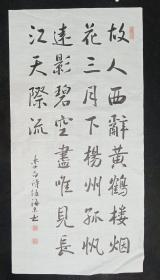 故人西辭黃鶴樓烟
花三月下楊州孤帆
遠影碧空盡唯見長
江天際流